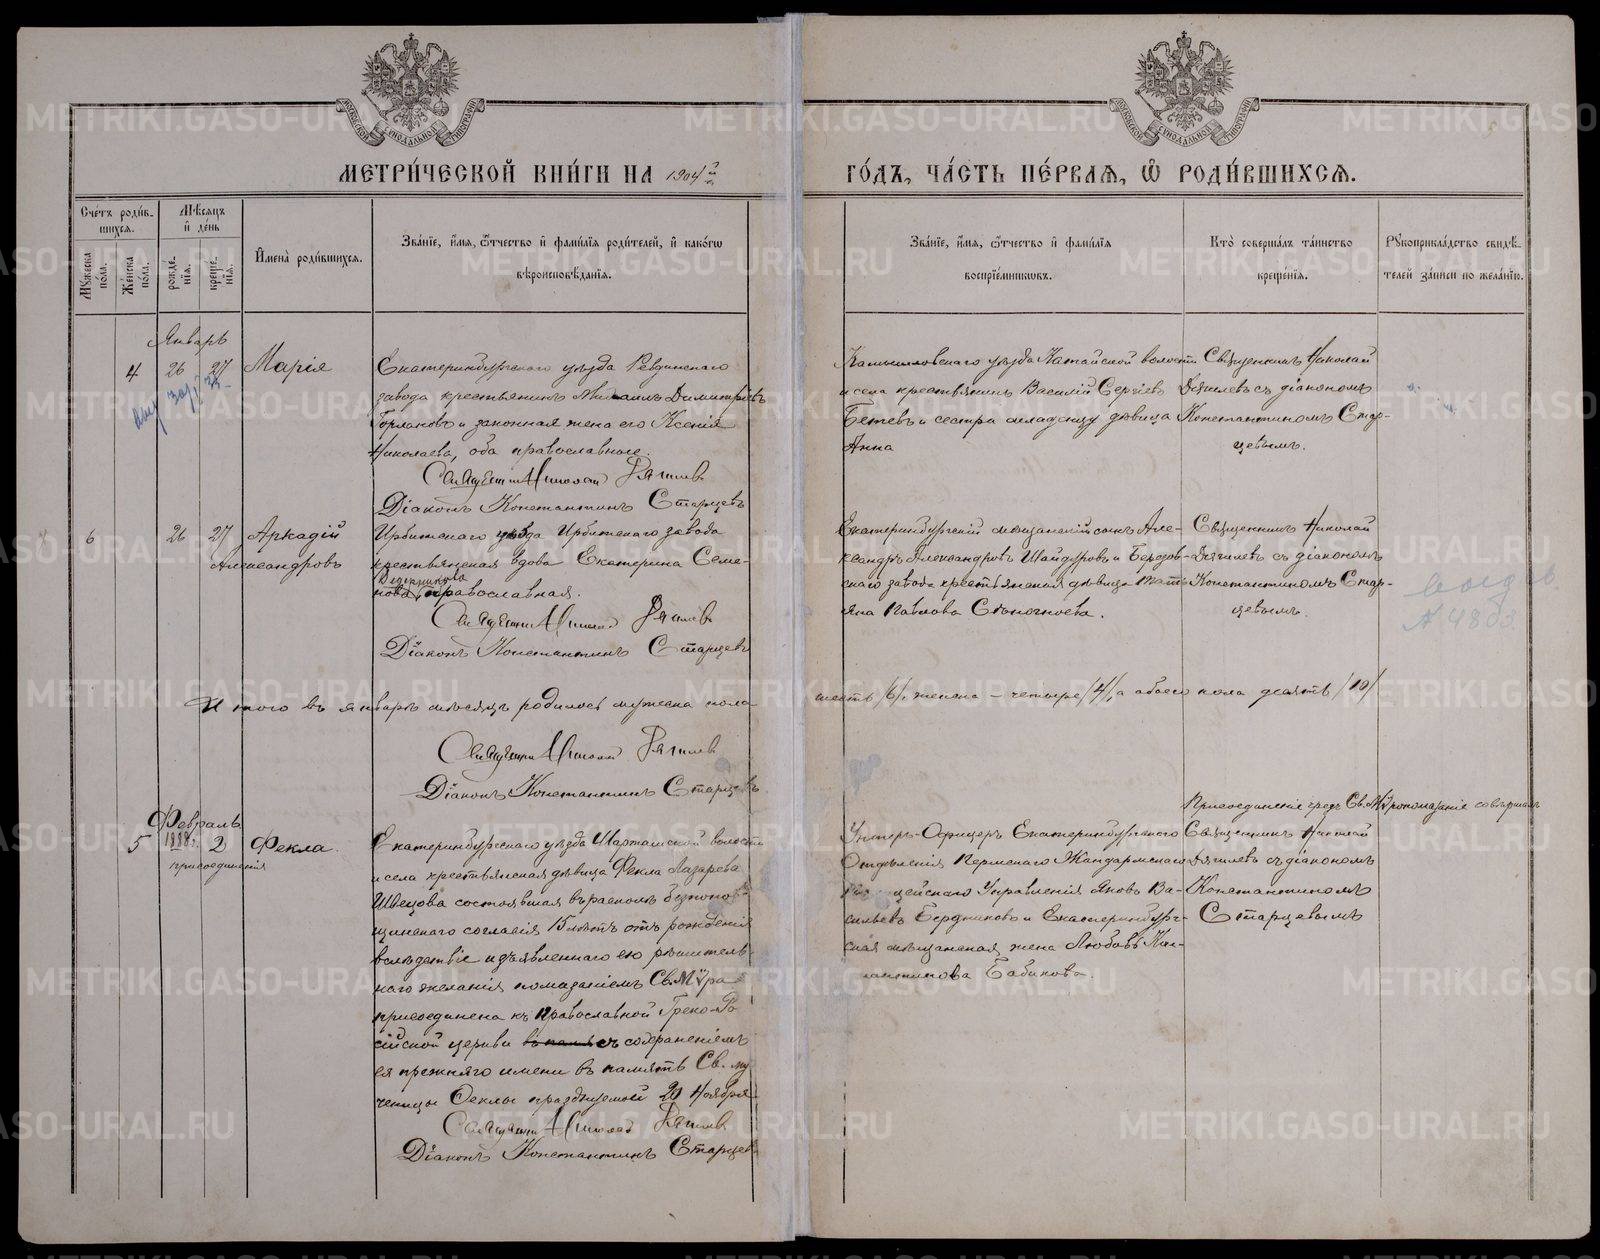 МЕТРИ́ЧЕСКОЙ КНИ́ГИ НА 1904й
ГО́ДЪ, ЧА́СТЬ ПЕ́РВАЯ, Ѡ҆ РОДИ́ВШИХСЯ.
Сче́тъ роди́в-
шихся.
Мѣ́сяцъ
и҆ де́нь
Мꙋ́жеска
по́ла.
Же́нска
по́ла.
рожде́-
нїѧ.
креще́-
нїѧ.
И҆мена̀ роди́вшихся.
Зва́нїе, и҆́мя, ѻ҆́тчество и҆ фами́лїя роди́телей, и҆ како́гѡ
вѣроисповѣ́данїя.
Зва́нїе, и҆́мя, ѻ҆́тчество и҆ фами́лїя
воспрїе́мникѡвъ.
Кто̀ соверша́лъ та́инство
креще́нїя.
Рꙋкоприкла́дство свидѣ́-
телей за́писи по жела́нїю.
Январь
4 26 27 Марія
Екатеринбургскаго уѣзда Ревдинскаго
завода крестьянинъ Михаилъ Димитріевъ
Горлановъ и законная жена его Ксенія
Николаева, оба православные.
Священникъ Николай Дягилевъ
Діаконъ Константинъ Старцевъ
Камышловскаго уѣзда Катайской волости
и села крестьянинъ Василій Сергѣевъ
Бетевъ и сестра младенцу дѣвица
Анна
Священникъ Николай
Дягилевъ съ діакономъ
Константиномъ Стар-
цевымъ.
6 26 27 Аркадій
Александровъ
Ирбитскаго уѣзда Ирбитскаго завода
крестьянская вдова Екатерина Семе-
нова православная.
Священникъ Николай Дягилевъ
Діаконъ Константинъ Старцевъ
Екатеринбургскій мѣщанскій сынъ Але-
ксандръ Александровъ Шайдуровъ и Березов-
скаго завода крестьянская дѣвица Тать-
яна Павлова
Священникъ Николай
Дягилевъ съ діакономъ
Константиномъ Стар-
цевымъ.
А 4803.
Итого въ январѣ мѣсяцѣ родилось мужеска пола
шесть /6/, женска – четыре /4/, а обоего пола десять /10/
Священникъ Николай Дягилевъ
Діаконъ Константинъ Старцевъ
Февраль
5 1888 г. 2 Фекла.
присоединенія
Екатеринбургскаго уѣзда Шарташской волости
и села крестьянская дѣвица Фекла Лазарева
Швецова состоявшая въ расколѣ безпопов-
щинскаго согласія 15 лѣтъ отъ рожденія
вслѣдствіе изъявленнаго ею рѣшитель-
наго желанія помазаніемъ Св. Мѵра
присоединена къ Православной Греко-Ро
сійской церкви съ сохраненіемъ
ея прежняго имени въ память Св. му
ченицы Феклы празднуемой 20 Ноября
Священникъ Николай Дягилевъ
Діаконъ Константинъ Старцевъ
Унтеръ-Офицеръ Екатеринбургскаго
Отдѣленія Пермскаго Жандармскаго
Полицейскаго Управленія Яковъ Ва-
сильевъ Бердниковъ и Екатеринбург-
ская мѣщанская жена Любовь Кон-
стантинова Бабинова.
Присоединеніе чрезъ Св. Мѵропомазаніе совершалъ
Священникъ Николай
Дягилевъ съ діакономъ
Константиномъ
Старцевымъ
METRIKI.GASO-URAL.RU